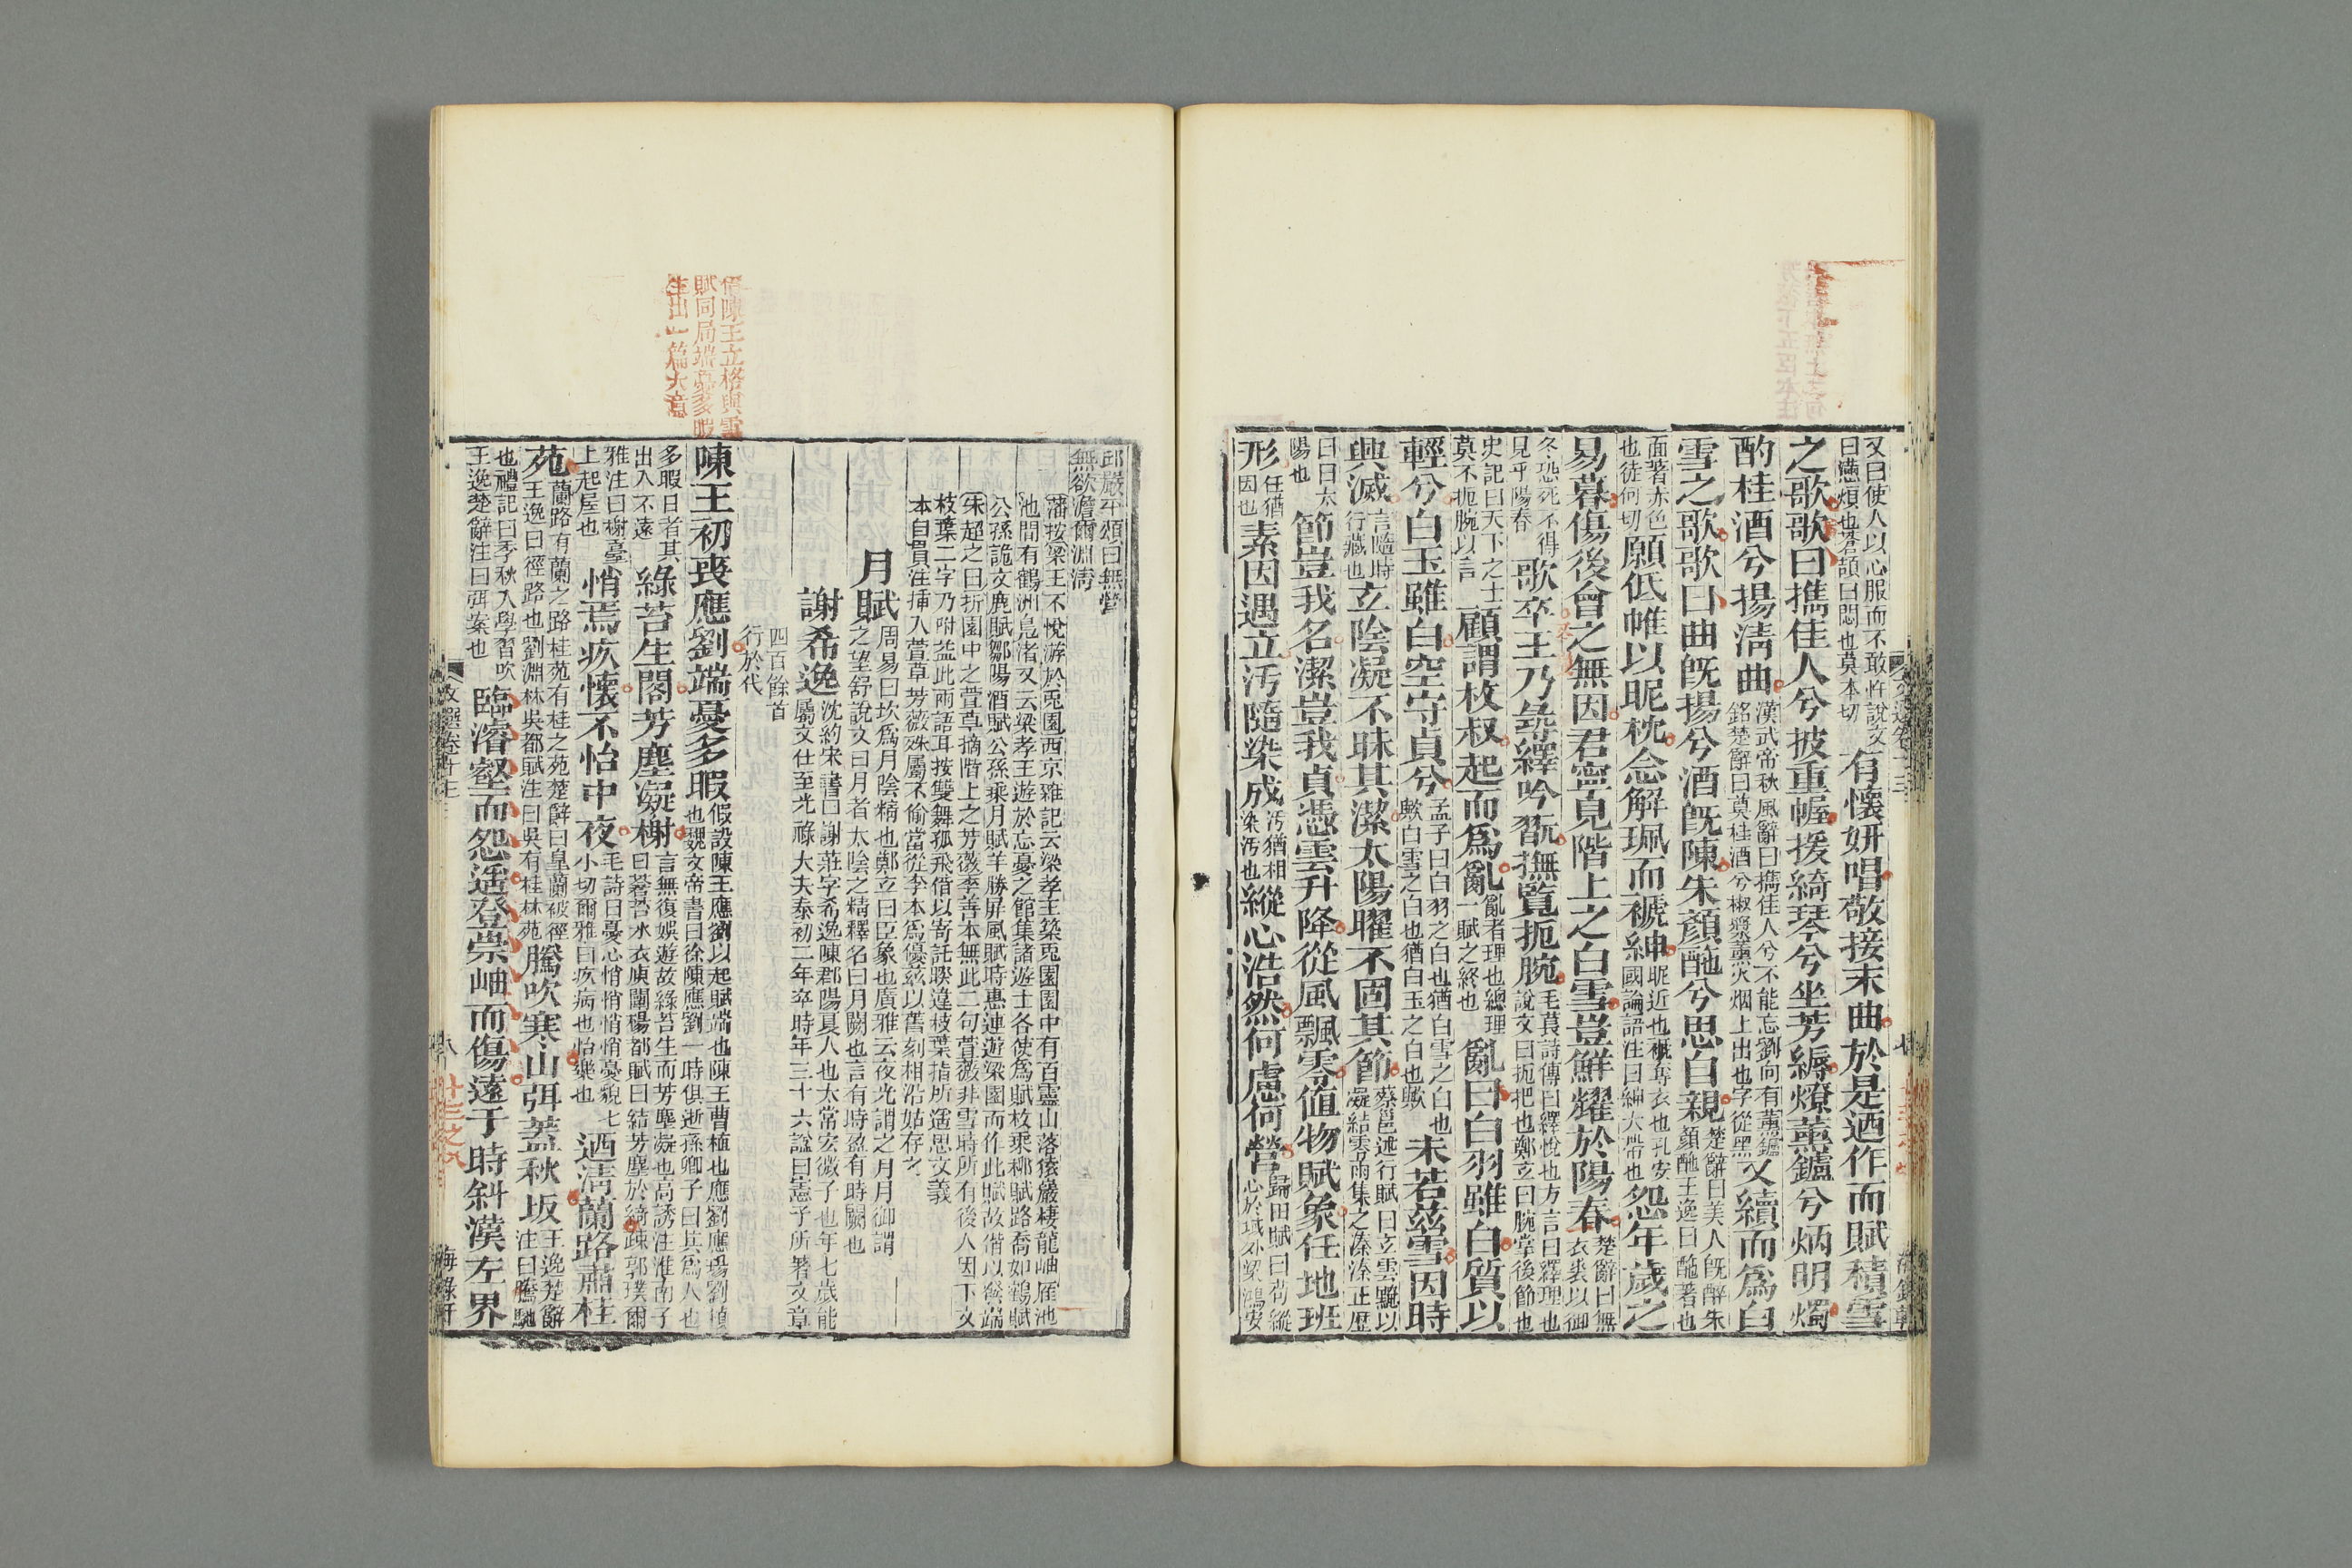 又曰使人以心服而不敢忤說文
曰懣煩也蒼頡曰悶也莫本切
有懷妍唱敬接末曲於是迺作而賦積雪
之歌歌曰攜佳人兮披重幄援綺琴兮坐芳縟燎薰鑪兮炳明燭
酌桂酒兮揚清曲
漢武帝秋風辭曰攜佳人兮不能忘劉向有薰鑪
銘楚辭曰奠桂酒兮椒漿薰火烟上出也字從黑
又續而為白
雪之歌歌曰曲既揚兮酒既陳朱顏酡兮思自親
楚辭曰美人既醉朱
顏酡王逸曰酡著也
面著赤色
也徒何切
願低帷以昵枕念解珮而褫紳
昵近也褫奪衣也孔安
國論語注曰紳大帶也
怨年歲之
易暮傷後會之無因君寧見階上之白雪豈鮮耀於陽春
楚辭曰無
衣裘以御
冬恐死不得
見乎陽春
歌卒王乃㝷繹吟翫撫覽扼腕
毛萇詩傳曰繹悅也方言曰繹理也
說文曰扼把也鄭玄曰腕掌後節也
史記曰天下之士
莫不扼腕以言
顧謂枚叔起而爲亂
亂者理也總理
一賦之終也
亂曰白羽雖白質以
輕兮白玉雖白空守貞兮
孟子曰白羽之白也猶白雪之白也
歟白雪之白也猶白玉之白也歟
未若茲雪因時
興滅
言隨時
行藏也
玄陰凝不昧其潔太陽曜不固其節
蔡邕述行賦曰玄雲黯以
凝結零雨集之溱溱正歴
曰日太
陽也
節豈我名潔豈我貞憑雲升降從風飄零值物賦象任地班
形
任猶
因也
素因遇立汚隨染成
汚猶相
染汚也
縱心浩然何慮何營
歸田賦曰苟縱
心於域外梁鴻安
邱嚴平頌曰無營
無欲澹爾淵清
藩按梁王不悅游於兎園西京雜記云梁孝王築兎園園中有百靈山落猿巖棲龍岫雁池
池間有鶴洲鳧渚又云梁孝王遊於忘憂之館集諸遊士各使爲賦枚乘柳賦路喬如鶴賦
公孫詭文鹿賦鄒陽酒賦公孫乘月賦羊勝屏風賦時惠連遊梁園而作此賦故借以發端
朱超之曰折園中之萱草摘階上之芳薇李善本無此二句萱薇非雪時所有後人因下文
枝葉二字乃附益此兩語耳按雙舞孤飛借以寄託暌違枝葉指所遥思文義
本自貫注插入萱草芳薇殊屬不倫當從李本爲優茲以舊刻相沿姑存之
月賦
周易曰坎爲月陰精也鄭玄曰臣象也廣雅云夜光謂之月月御謂
之望舒說文曰月者太陰之精釋名曰月闕也言有時盈有時闕也
謝希逸
沈約宋書曰謝莊字希逸陳郡陽夏人也太常宏微子也年七歲能
屬文仕至光祿大夫泰初二年卒時年三十六謚曰憲子所著文章
四百餘首
行於代
陳王初喪應劉端憂多暇
假設陳王應劉以起賦端也陳王曹植也應劉應瑒劉楨
也魏文帝書曰徐陳應劉一時俱逝孫卿子曰其爲人也
多暇日者其
出入不遠
綠苔生閣芳塵凝榭
言無復娛遊故綠苔生而芳塵凝也高誘注淮南子
曰蒼苔水衣庾闡楊都賦曰結芳塵於綺疎郭璞爾
雅注曰榭臺
上起屋也
悄焉疚懷不怡中夜
毛詩曰憂心悄悄悄悄憂貌七
小切爾雅曰疚病也怡樂也
迺淸蘭路肅桂
苑
蘭路有蘭之路桂苑有桂之苑楚辭曰皐蘭被徑
王逸曰徑路也劉淵林吳都賦注曰吳有桂林苑
騰吹寒山弭蓋秋坂
王逸楚辭
注曰騰馳
也禮記曰季秋入學習吹
王逸楚辭注曰弭案也
臨濬壑而怨遥登崇岫而傷遠于時斜漢左界
文選卷十三
八
海錄軒
廿三之八
借陳王立格與雪
賦同局端憂多暇
生出一篇大意